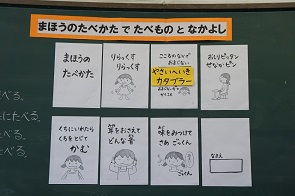 まほうのたべかた で たべもの と なかよし
まほうの
たべかた
りらっくす
りらっくす
こころのなかで
おまじない
やさいへいき
カタブラー
おしりピッタン
せなかピン
べる。
にたべる。
べる。
べる。
くちにいれたら
くちをとじて
かむ
耳をおさえて
どんな音
味をみつけて
さめ ごっくん
ごっくん
なまえ